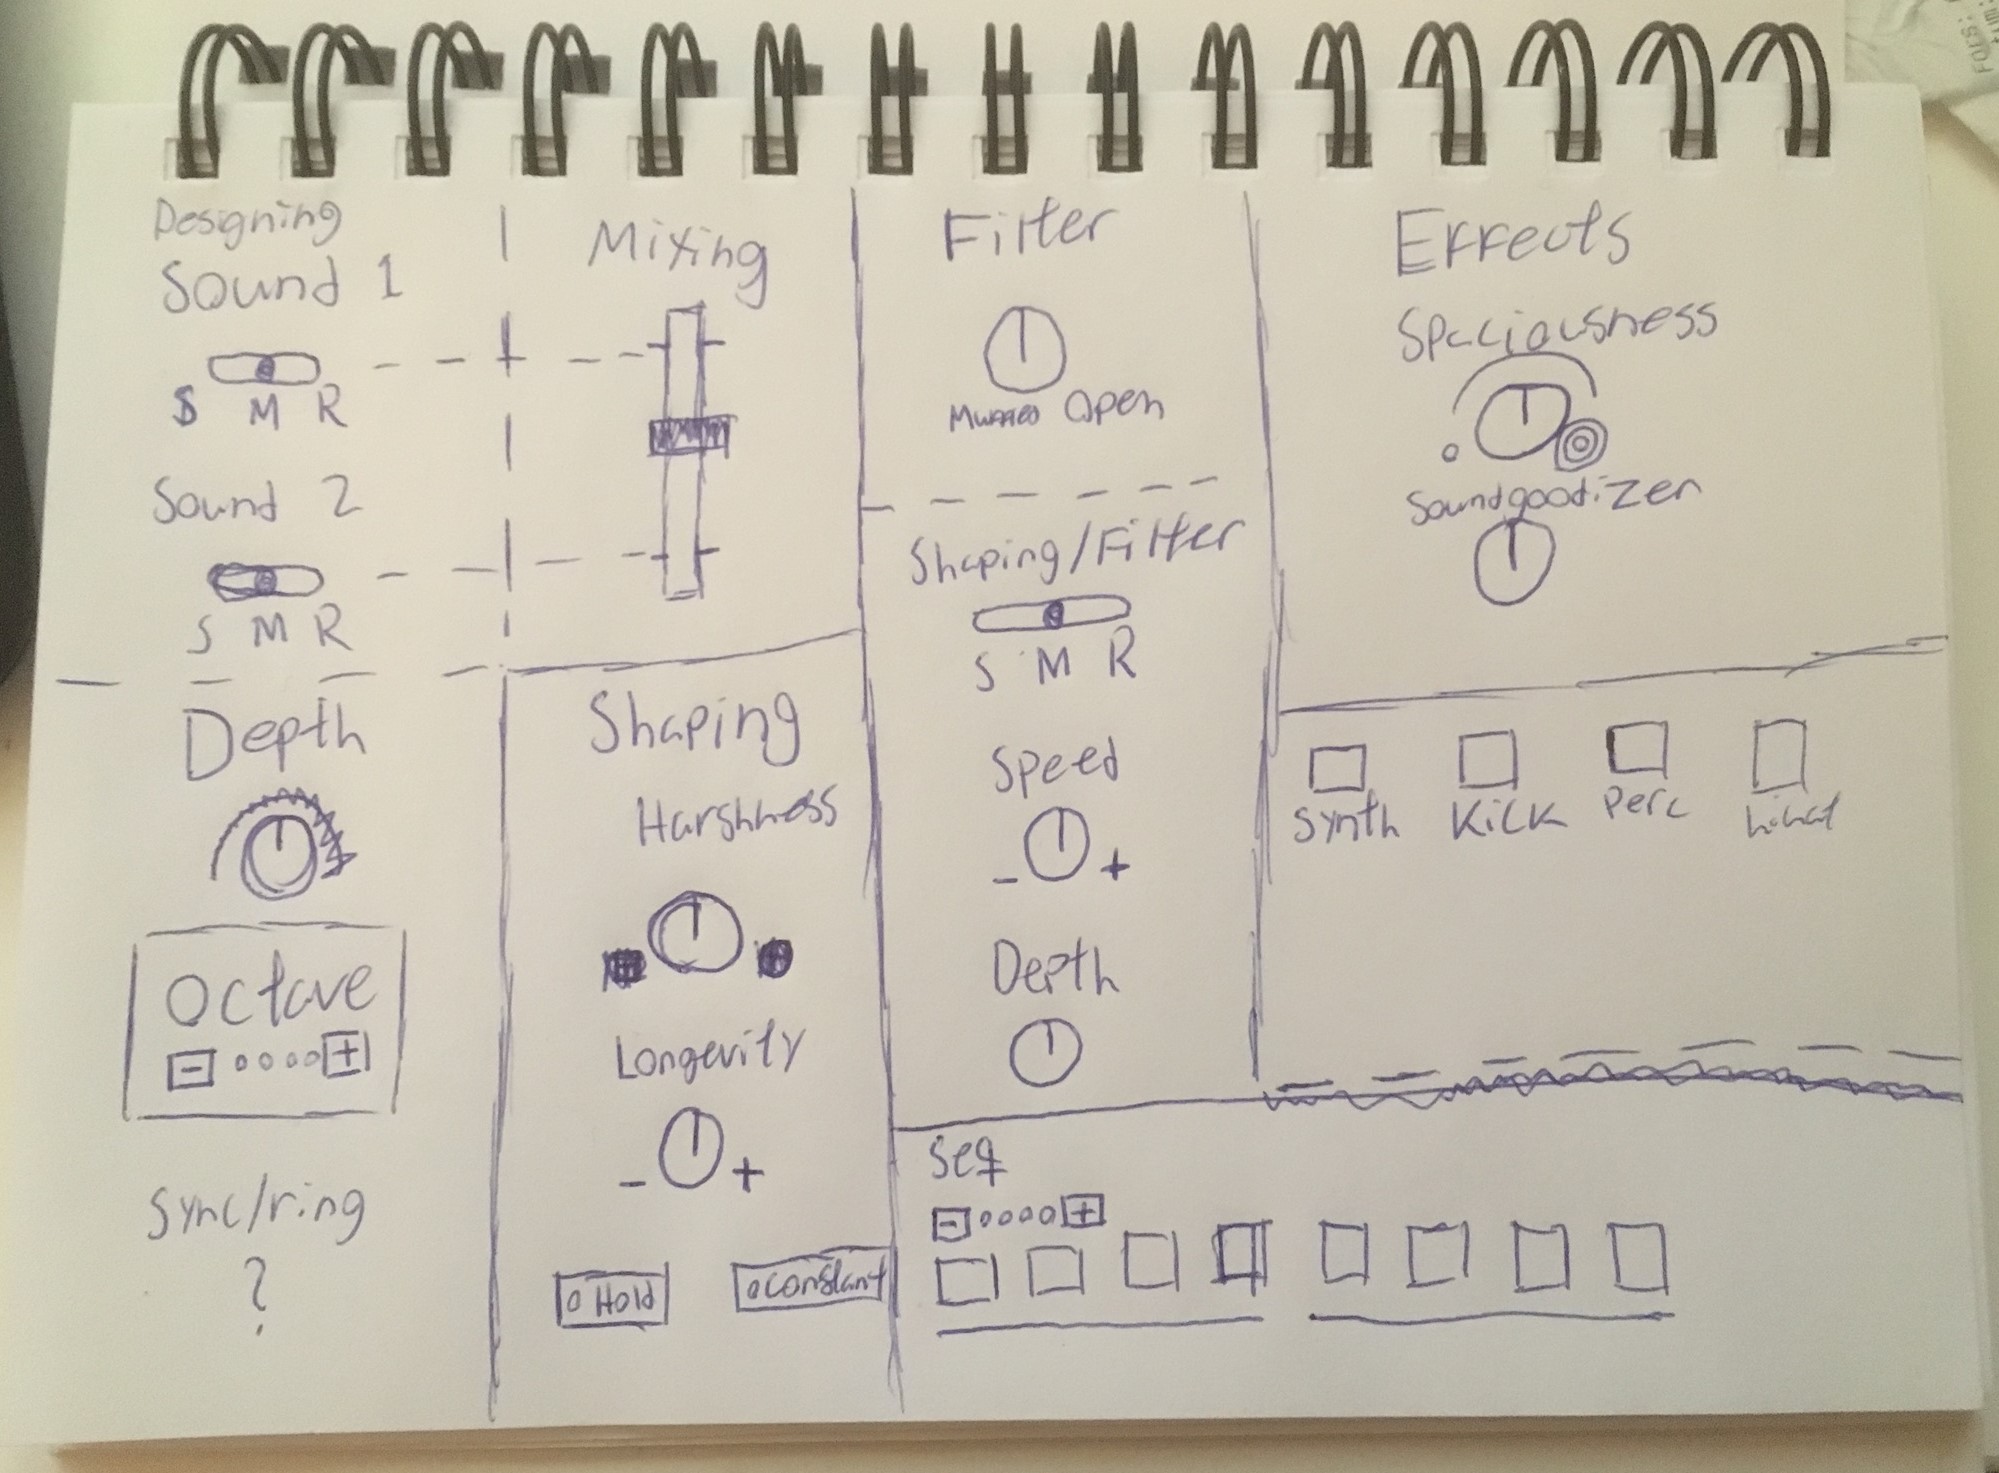 Designing
Sound 1
S M R
Sound 2
S M R
Depth
Octave
- +
Sync/ring
?
Mixing
Shaping
Harshness
Longevity
- +
Hold
Constant
Filter
Muffled Open
Shaping/Filter
S M R
Speed
- +
Depth
Effects
Spaciousness
Soundgoodizer
Synth Kick Perc hihat
Seq
- +